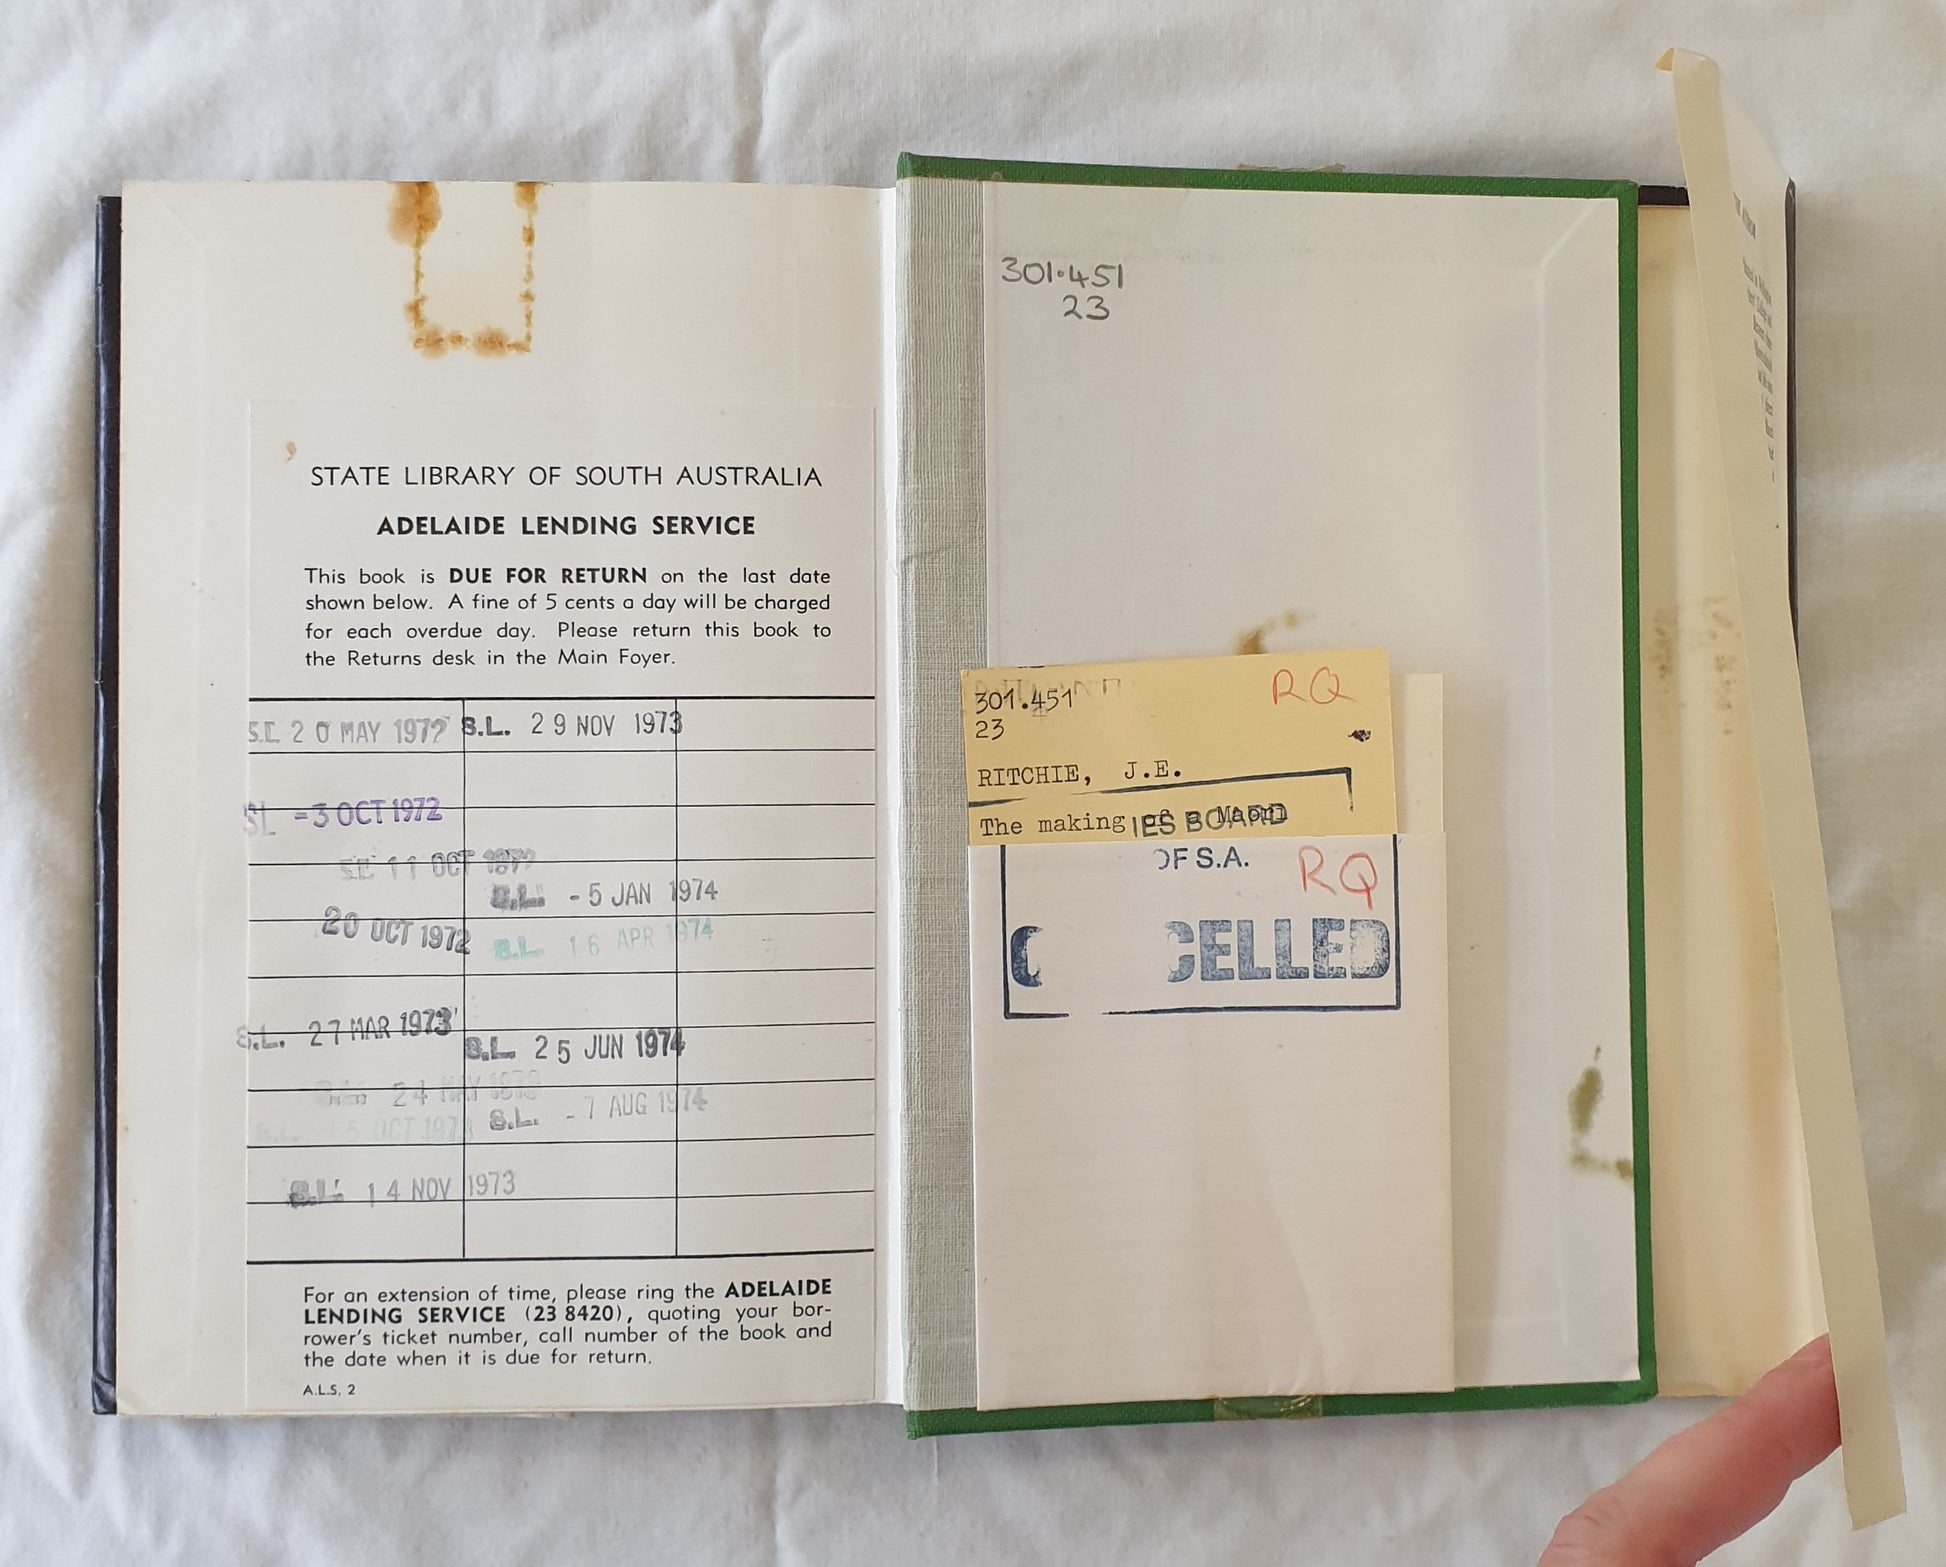 STATE LIBRARY OF SOUTH AUSTRALIA
ADELAIDE LENDING SERVICE
This book is DUE FOR RETURN on the last date
shown below. A fine of 5 cents a day will be charged
for each overdue day. Please return this book to
the Returns desk in the Main Foyer.
SE 20 MAY 1972
SL -3 OCT 1972
SE 11 OCT 1972
20 OCT 1972
S.L. 27 MAR 1973
24 MAY 1973
S.L. 16 OCT 1973
S.L. 14 NOV 1973
S.L. 29 NOV 1973
S.L. -5 JAN 1974
S.L. 16 APR 1974
S.L. 25 JUN 1974
S.L. -7 AUG 1974
For an extension of time, please ring the ADELAIDE
LENDING SERVICE (23 8420), quoting your bor-
rower's ticket number, call number of the book and
the date when it is due for return.
A.L.S. 2
301.451
23
301.451 RQ
23
RITCHIE, J.E.
The making of a Maori
IES BOARD
OF S.A.
RQ
C CELLED